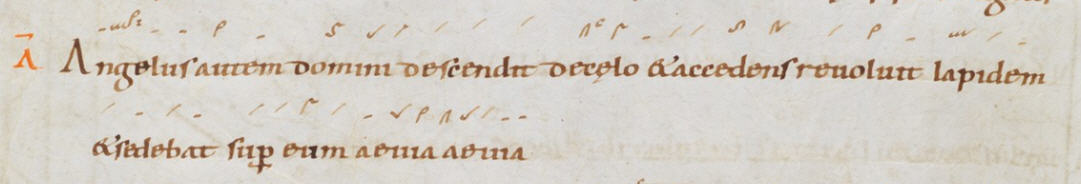 A Angelus autem domini descendit decęlo &accedens reuoluit lapidem
&sedebat sup eum aeuia aeuia